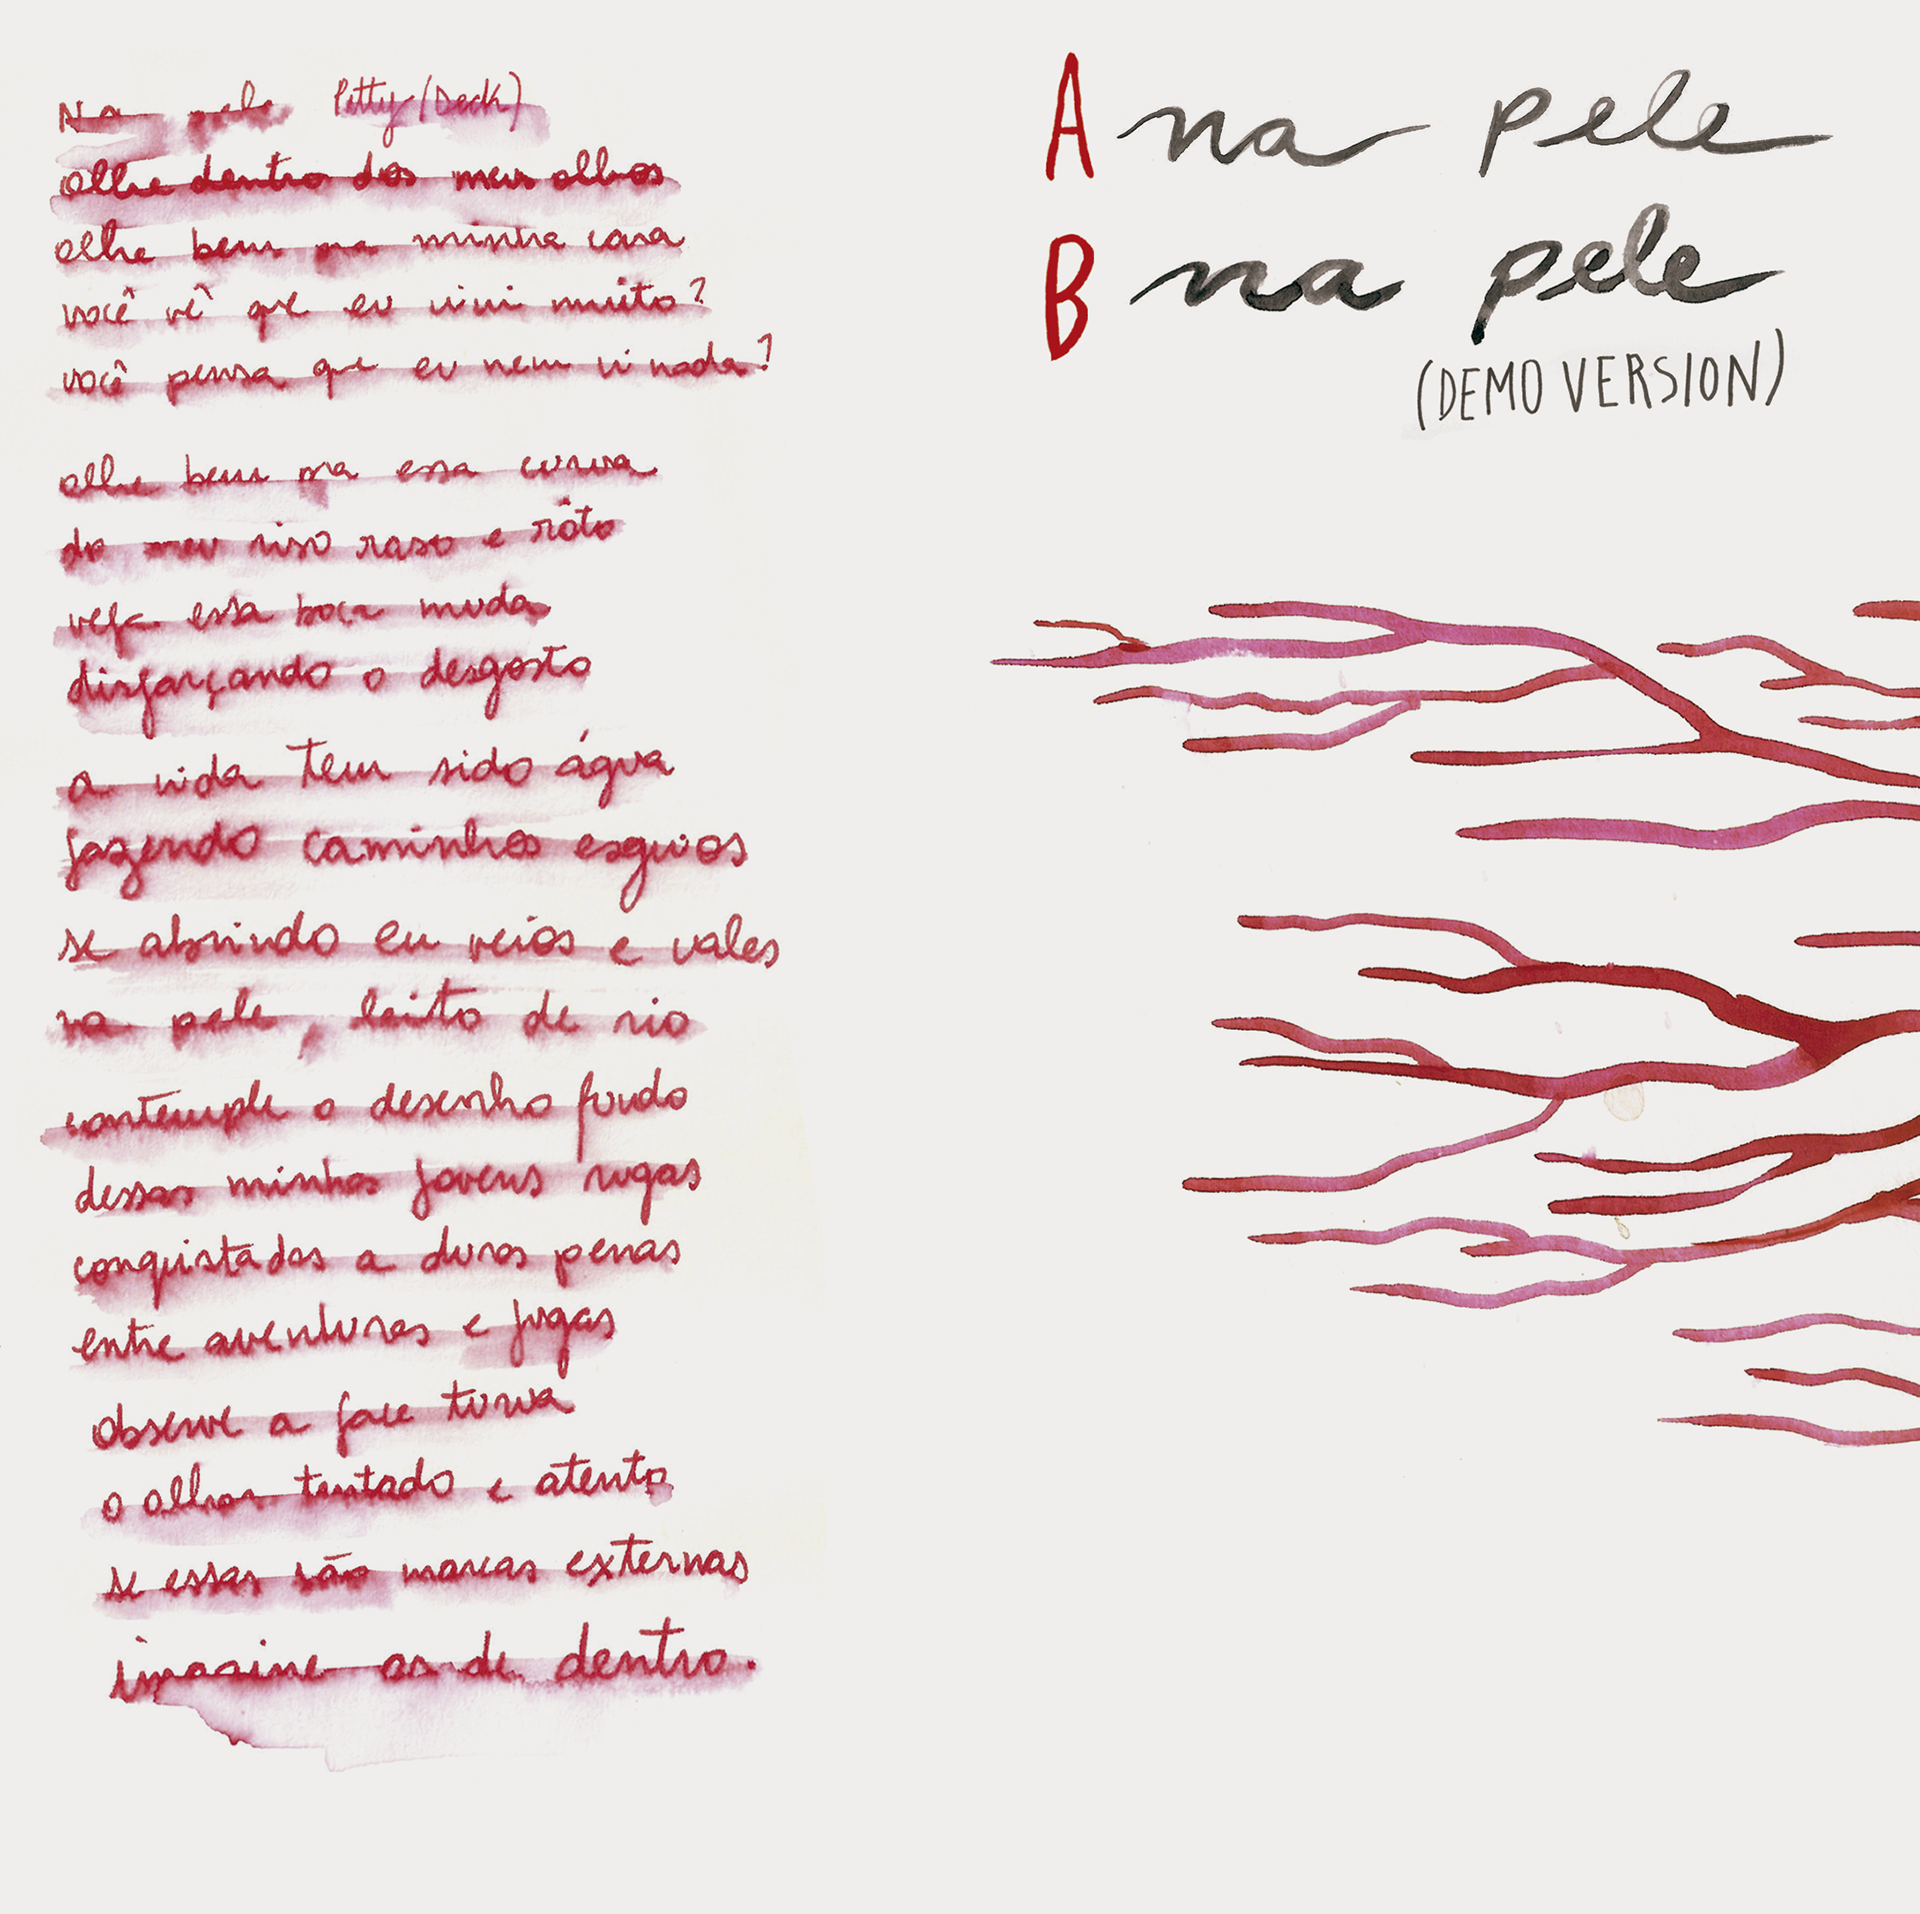 Na pele Pitty (Deck)
olhe dentro dos meus olhos
olhe bem na minha cara
você vê que eu vivi muito?
você pensa que eu nem vi nada?
olhe bem pra essa curva
do meu riso raso e rôto
veja essa boca muda
disfarçando o desgosto
a vida tem sido água
fazendo caminhos esguios
se abrindo em veios e vales
na pele, leito de rio
contemple o desenho fundo
dessas minhas jovens rugas
conquistadas a duras penas
entre aventuras e fugas
observe a face turva
o olhar tentado e atento
se essas são marcas externas
imagine as de dentro.
A na pele
B na pele
(DEMO VERSION)